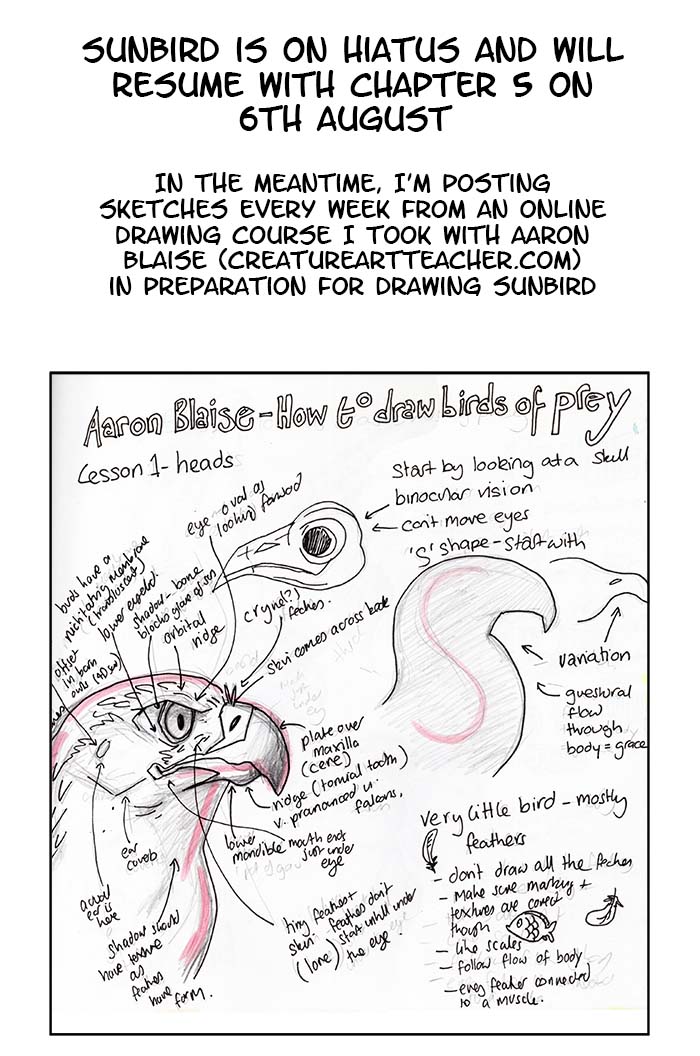 SUNBIRD IS ON HIATUS AND WILL
RESUME WITH CHAPTER 5 ON
6TH AUGUST
IN THE MEANTIME, I'M POSTING
SKETCHES EVERY WEEK FROM AN ONLINE
DRAWING COURSE I TOOK WITH AARON
BLAISE (CREATUREARTTEACHER.COM)
IN PREPARATION FOR DRAWING SUNBIRD
Aaron Blaise - How to draw birds of prey
Lesson 1 - heads
Start by looking at a skull
binocular vision
can't move eyes
'S' shape - start with
eye - oval as
looking forward
birds have a
nictitating membrane
(transluscent)
lower eyelid
shadow - bone
blocks glare of sun
orbital
ridge
feathers
skin comes across beak
offset
in barn
owls
variation
flow
through
body = grace
plate over
maxilla
(cere)
ridge (tomial tooth)
v. pronounced in
falcons,
lower
mandible
mouth ends
just under
eye
ear
coverts
actual
ear is
here
shadow should
have texture
as
feathers
have form.
tiny feathers +
skin - feathers don't
(lore) start until under
the eye.
very little bird - mostly
feathers
- don't draw all the feathers
- Make sure markings +
textures are correct
though
- like scales
- follow flow of body
- every feather connected
to a muscle.